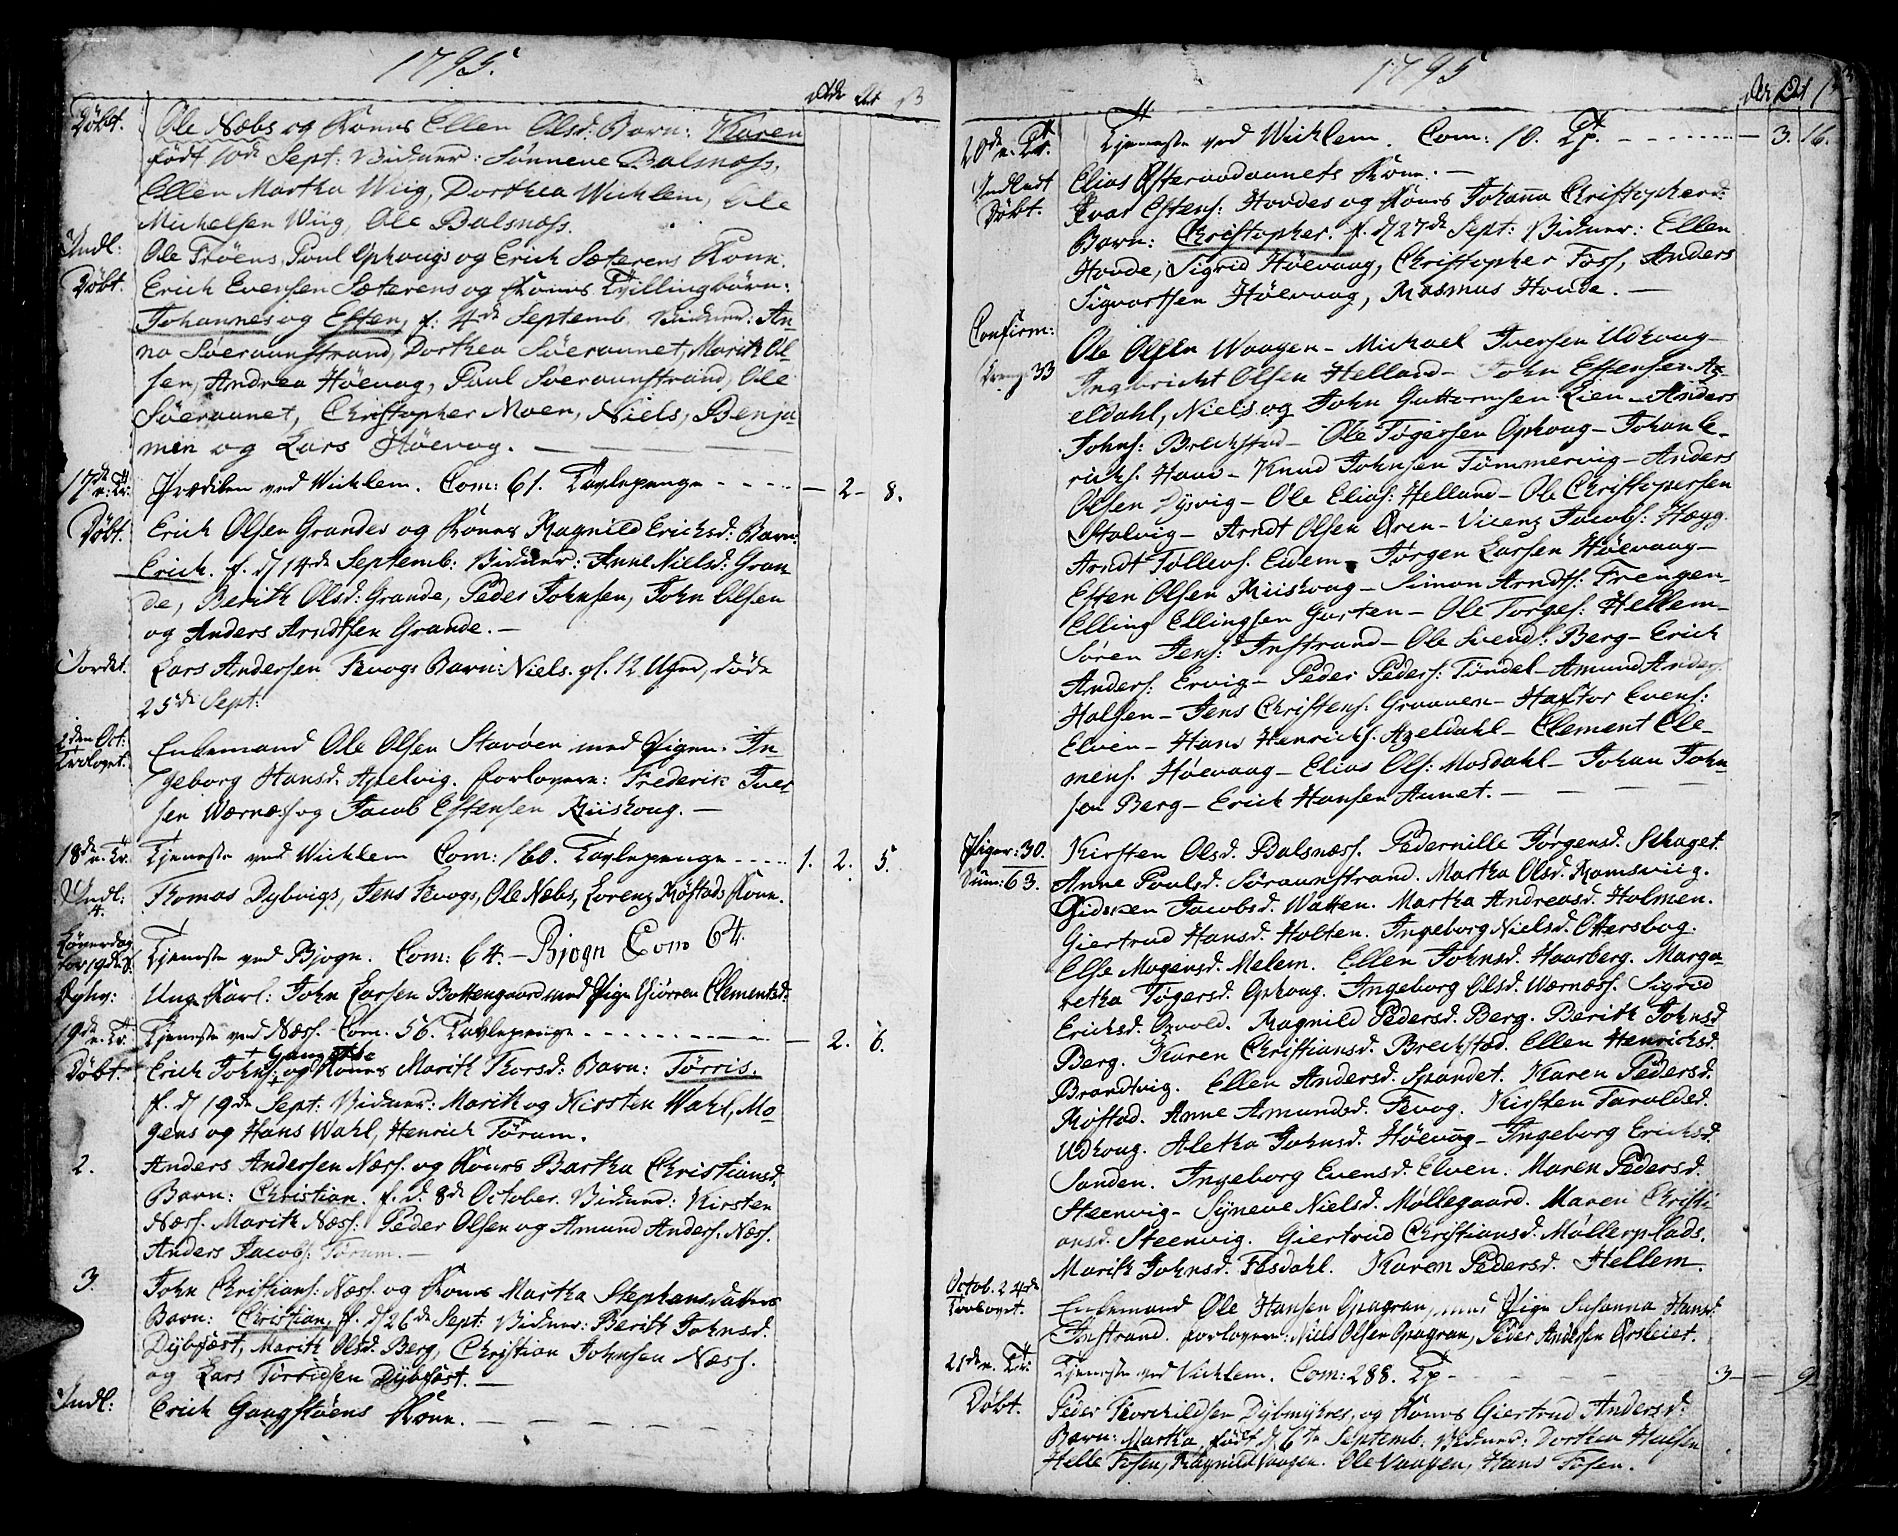 1795.
Døbt. Ole Næbs og Kones Ellen Olsd. Barn: Karen
født 10de Sept: Vidner: Sønneve Balsnæss,
Ellen Martha Wiig, Dorthea Wichlem, Ole
Michelsen Wiig, Ole Balsnæss.
Indl: Ole Frøens, Poul Ophougs og Erich Sæterens Kone.
Døbt. Erich Evensen Sæterens og Kones Tvillingbørn:
Johannes og Esten, f. 4de Septemb. Vidner: An-
na Søeraunstrand, Dorthea Søeraunet, Marith Ol-
sen, Andrea Høevog, Poul Søeraunstrand, Ole
Søeraunet, Christopher Moen, Niels, Benja-
min og Lars Høevog.
17de e. Tr. Prædiken ved Wichlem. Com: 61. Tavlepenge - 2 - 8.
Døbt. Erich Olsen Grandes og Kones Ragnild Erichsd: Barn:
Erich. f. d 14de Septemb: Vidner: Anne Nielsd: Gran-
de, Berith Olsd: Grande, Peder Johnsen, John Olsen
og Anders Arndtsen Grande.
Jordet. Lars Andersen Tevogs Barn: Niels. gl. 12 Uger, døde
25de Sept:
2den Oct: Enkemand Ole Olsen Stavøen med Pigen. In-
Trolovet. geborg Hansd. Apelvig. forlovere: Frederik Iver
sen Wærnæss og Jacob Estensen Riiskoug.
18de e. Tr. Tjeneste ved Wichlem Com: 160. Tavlepenge 1. 2. 5.
Indl: 4. Thomas Dybvigs, Jens Tevogs, Ole Næbs, Lorenz Røstads Kone.
Løverdag for 19de Tjeneste ved Bjogn. Com: 64. - Bjogn Com 64.
Unge Karl: John Larsen Bottengaard med Pige Giørren Clementsd:
19de e. Tr. Tjeneste ved Næss. Com. 56. Tavlepenge - 2. 6.
Gangstøe
Døbt. Erich Johns: og Kones Marith Thorsd: Barn: Tørris.
f. d 19de Sept: Vidner: Marith og Kirsten Wahl, Mo-
gens og Hans Wahl, Henrich Tørum.
2. Anders Andersen Næss. og Kones Bartha Christiansd.
Barn: Christian. f. d. 8de October. Vidner: Kirsten
Næss. Marith Næss. Peder Olsen og Amund Anders. Næss.
Anders Jacobs: Tørum.
3. John Christians: Næss. og Kones Martha Stephansdatters
Barn: Christian, f. d 26de Sept: Vidner: Berith Johnsd.
Dybføst, Marith Olsd. Berg, Christian Johnsen Næss.
og Lars Torridsen Dybføst.
Indl: Erich Gangstøens Kone.
1795
20de e. Tr. Tjeneste ved Wichlem. Com: 10. Tp. - 3. 16.
Indledt Elias Østeraadaunets Kone.
Døbt. Ivar Estens: Hovdes og Kones Johanna Christophersd:
Barn: Christopher. f. d 27de Sept: Vidner: Ellen
Hovde, Sigrid Høevaag, Christopher Foss, Anders
Sigvartsen Høevaag, Rasmus Hovde.
Confirm: Ole Olsen Waagen - Michael Iversen Udhoug -
Dreng. 33 Ingebricht Olsen Helland - John Estensen Ag-
eldahl, Niels og John Guttormsen Lien - Anders
Johns: Brechstad - Ole Tøgersen Ophoug - Johan E-
richs. Haav - Knud Johnsen Tømmervig - Anders
Olsen Dysvig - Ole Elias: Helland - Ole Christophersen
Stalvig - Arndt Olsen Øren - Vicenz Jacobs: Hægg.
Arndt Tollevs. Eidem. Jørgen Larsen Høevaag -
Esten Olsen Riiskoug - Simon Arndts: Frengen -
Elling Ellingsen Garten - Ole Torges: Hellem -
Søren Jens: Instrand - Ole Svend: Berg - Erich
Anders: Ervig - Peder Peders: Tøndel - Amund Anders:
Holsen - Jens Christens: Graaven - Haftor Evens:
Elven - Hans Henrichs. Ageldahl - Clement Cle-
mens. Høevaag - Elias Ols: Mosdahl - Johan John-
sen Berg - Erich Hansen Aunet.
Piger: 30. Kirsten Olsd. Balsnæss. Pedernille Jørgensd. Schaget.
Sum: 63. Anne Poulsd. Søraunstrand. Martha Olsd. Ramsviig.
Gidsken Jacobsd. Watten. Martha Andreasd. Holmen.
Giertrud Hansd. Holten. Ingeborg Nielsd. Ottersbog.
Else Mogensd. Melem. Ellen Johnsd. Haarberg. Marga-
retha Tøgersd. Ophoug. Ingeborg Olsd. Wærnæss. Sigrid
Erichsd. Opvold. Ragnild Pedersd. Berg. Berith Johnsd.
Berg. Karen Christiansd. Brechstad. Ellen Henrichsd.
Brandtvig. Ellen Andersd. Spandet. Karen Pedersd.
Røstad. Anne Amundsd. Tevog. Kirsten Taraldsd.
Udhoug. Aletha Johnsd. Høevog - Ingeborg Erichsd.
Sanden. Ingeborg Evensd. Elven. Maren Pedersd.
Steenvig - Syneve Nielsd. Møllegaard. Maren Christi-
ansd. Steenvig. Giertrud Christiansd. Møllerplads.
Marith Johnsd. Fosdahl. Karen Pedersd. Hellem.
Octob. 24de Enkemand Ole Hansen Opagran, med Pige Susanna Hansd.
Trolovet. Instrand. forlovere: Niels Olsen Opagran, Peder Andersen Ørsleiet.
21de e. Tr: Tjeneste ved Wichlem. Com: 288. Tp - 3 - 9
Døbt. Peder Thorchildsen Dybmyhres, og Kones Giertrud Andersd:
Barn: Martha, født d 6te Septemb. Vidner: Dorthea
Helle Fosen, Ragnild Vaagen. Ole Vaagen, Hans Fosen.